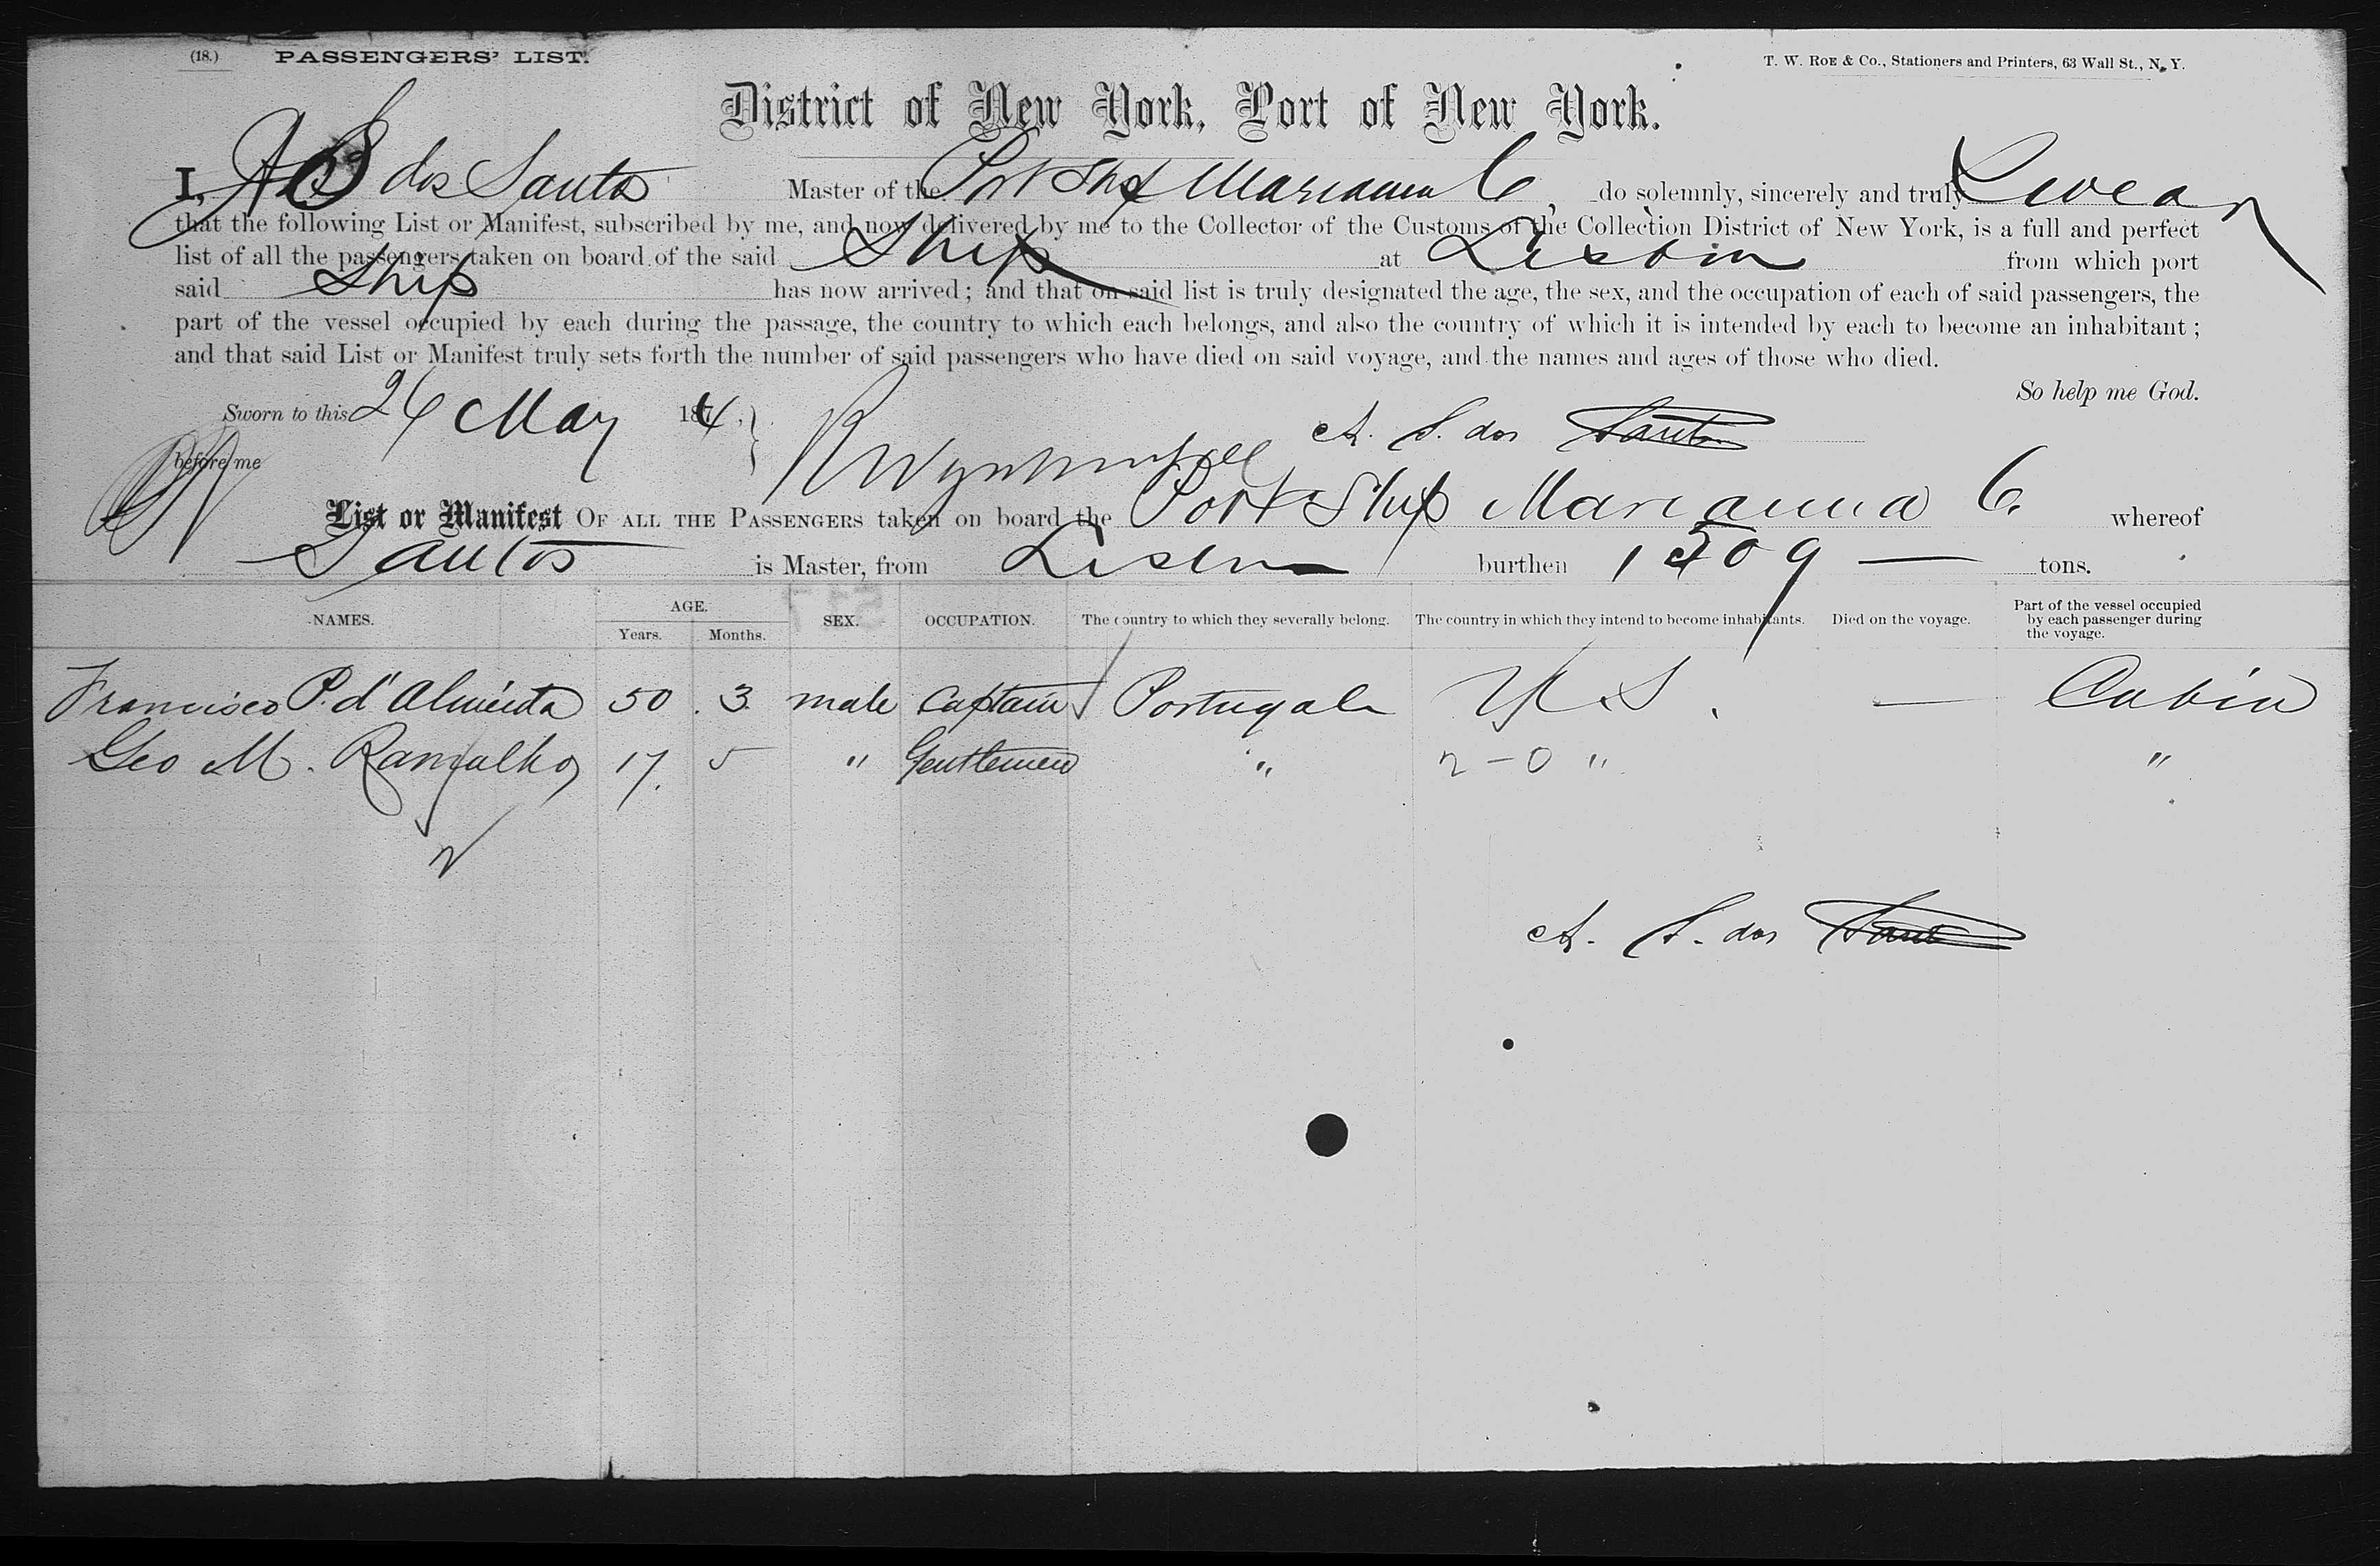 (18.) PASSENGERS' LIST. T. W. ROE & Co., Stationers and Printers, 63 Wall St., N. Y.
District of New York, Port of New York.
I, dos Santos Master of the Port Ship Marianna C, do solemnly, sincerely and truly Swear
that the following List or Manifest, subscribed by me, and now delivered by me to the Collector of the Customs of the Collection District of New York, is a full and perfect
list of all the passengers taken on board of the said Ship at Lisbon from which port
said Ship has now arrived; and that on said list is truly designated the age, the sex, and the occupation of each of said passengers, the
part of the vessel occupied by each during the passage, the country to which each belongs, and also the country of which it is intended by each to become an inhabitant;
and that said List or Manifest truly sets forth the number of said passengers who have died on said voyage, and the names and ages of those who died.
So help me God.
Sworn to this 26 May 187 A. S. dos Santos
before me
List or Manifest OF ALL THE PASSENGERS taken on board the Port Ship Marianna C. whereof
Santos is Master, from Lisbon burthen 1509 — tons.
NAMES. AGE. Years. Months. SEX. OCCUPATION. The country to which they severally belong. The country in which they intend to become inhabitants. Died on the voyage. Part of the vessel occupied by each passenger during the voyage.
Francisco P. d'Almeida 50 3 male Captain Portugal U S. — Cabin
Geo M. Ramalho 17. 5 " Gentlemen " 2-0 " "
A. S. dos Santos